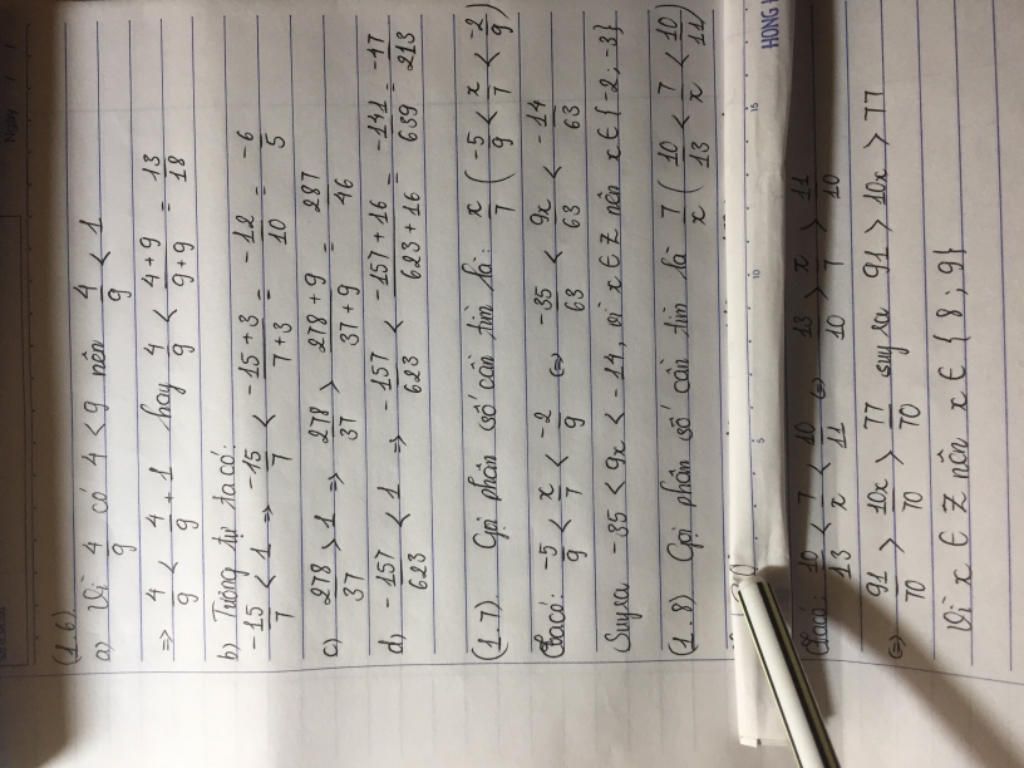 Ngày
(1.6)
a) Vì 4/9 có 4 < 9 nên 4/9 < 1
=> 4/9 < 4/9 + 1 hay 4/9 < (4 + 9)/(9 + 9) = 13/18
b) Tương tự ta có:
-15/7 < 1 => -15/7 < (-15 + 3)/(7 + 3) = -12/10 = -6/5
c) 278/37 > 1 => 278/37 > (278 + 9)/(37 + 9) = 287/46
d) -157/623 < 1 => -157/623 < (-157 + 16)/(623 + 16) = -141/639 = -47/213
(1.7) Gọi phân số cần tìm là: x/7 (-5/9 < x/7 < -2/9)
Ta có: -5/9 < x/7 < -2/9 (=) -35/63 < 9x/63 < -14/63
Suy ra -35 < 9x < -14, vì x ∈ Z nên x ∈ {-2, -3}
(1.8) Gọi phân số cần tìm là 7/x (10/13 < 7/x < 10/11)
HONG
5 10 15
Ta có: 10/13 < 7/x < 10/11 (=) 13/10 > x/7 > 11/10
(=) 91/70 > 10x/70 > 77/70 suy ra 91 > 10x > 77
Vì x ∈ Z nên x ∈ {8; 9}